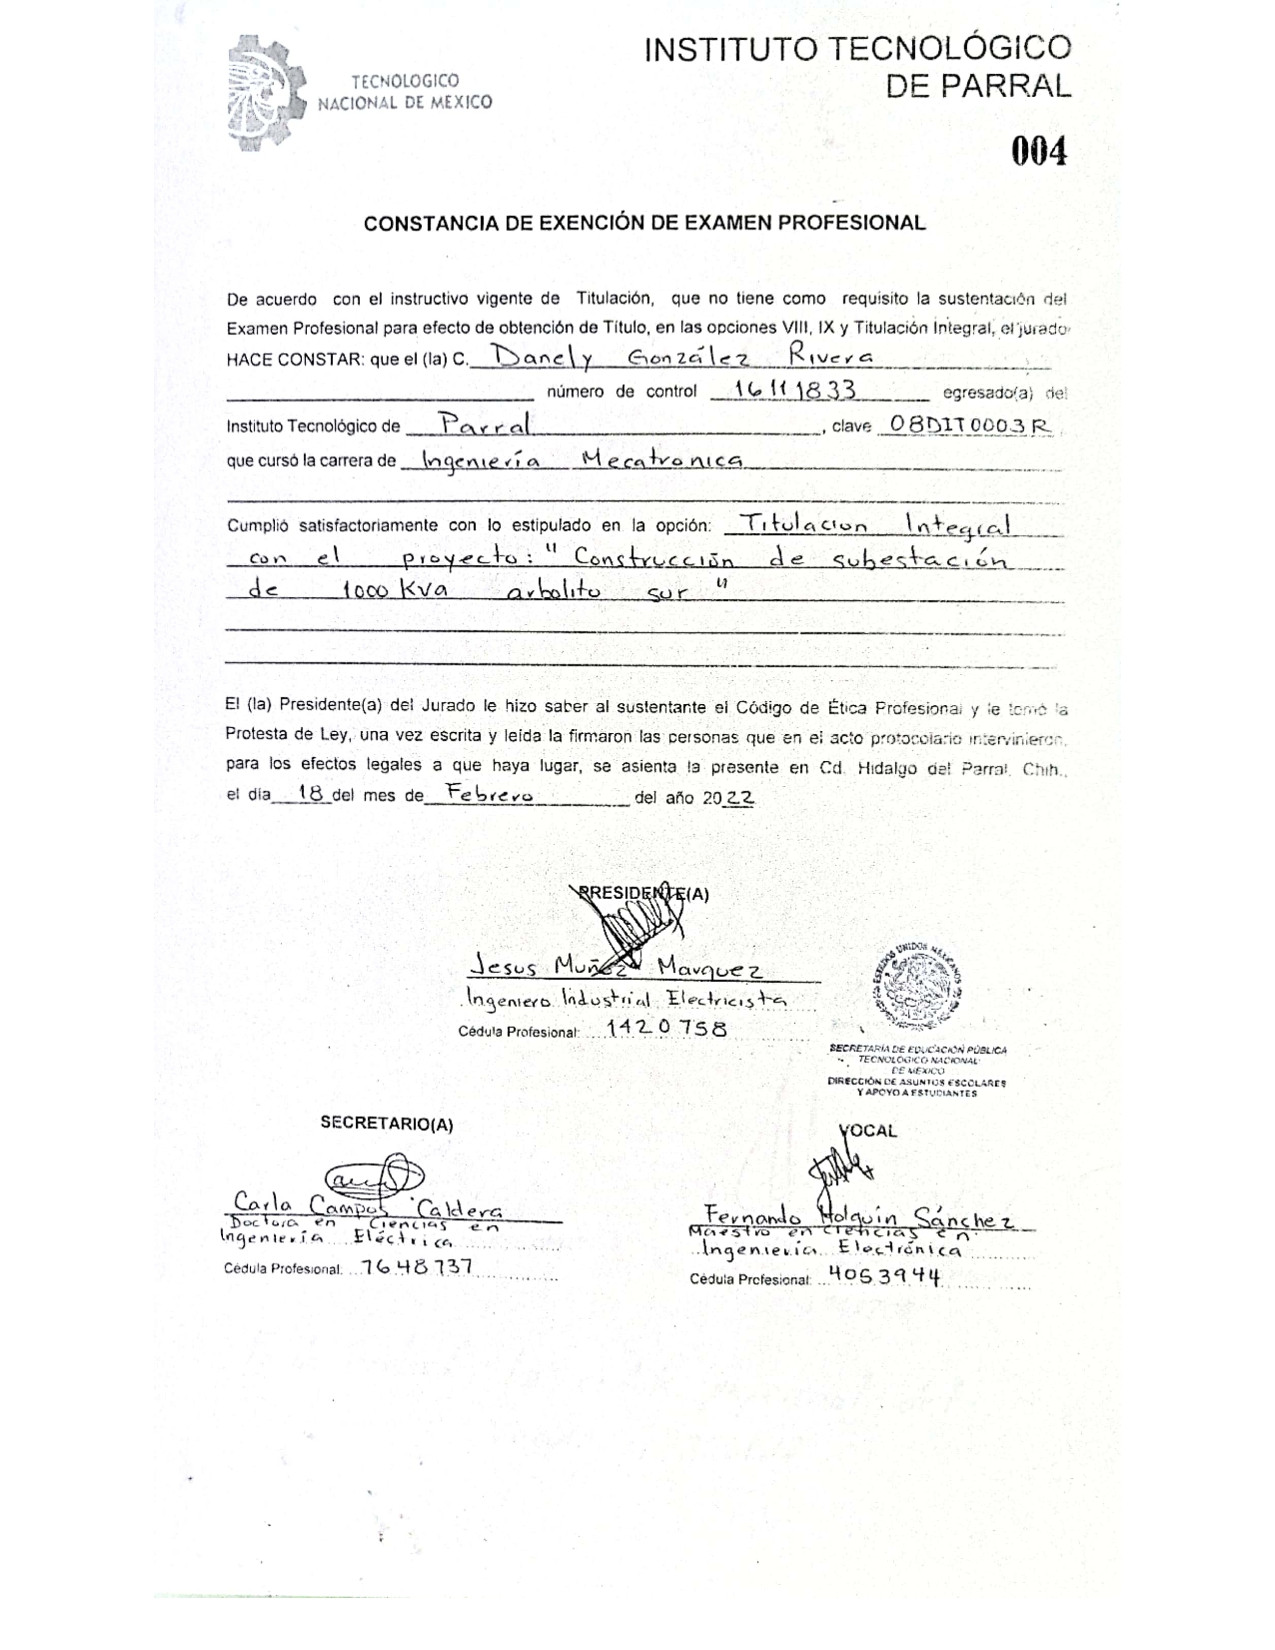 TECNOLOGICO
NACIONAL DE MEXICO
INSTITUTO TECNOLÓGICO
DE PARRAL
004
CONSTANCIA DE EXENCIÓN DE EXAMEN PROFESIONAL
De acuerdo con el instructivo vigente de Titulación, que no tiene como requisito la sustentación del
Examen Profesional para efecto de obtención de Título, en las opciones VIII, IX y Titulación Integral, el jurado
HACE CONSTAR: que el (la) C. Danely González Rivera
número de control 16111833 egresado(a) del
Instituto Tecnológico de Parral, clave 08DIT0003R
que cursó la carrera de Ingeniería Mecatronica
Cumplió satisfactoriamente con lo estipulado en la opción: Titulacion Integral
con el proyecto: "Construcción de subestación
de 1000 Kva arbolito sur"
El (la) Presidente(a) del Jurado le hizo saber al sustentante el Código de Ética Profesional y le tomó la
Protesta de Ley, una vez escrita y leída la firmaron las personas que en el acto protocolario intervinieron,
para los efectos legales a que haya lugar, se asienta la presente en Cd. Hidalgo del Parral, Chih.,
el día 18 del mes de Febrero del año 2022
PRESIDENTE(A)
Jesus Muñoz Marquez
Ingeniero Industrial Electricista
Cédula Profesional: 1420758
ESTADOS UNIDOS MEXICANOS
SECRETARÍA DE EDUCACIÓN PÚBLICA
TECNOLÓGICO NACIONAL
DE MÉXICO
DIRECCIÓN DE ASUNTOS ESCOLARES
Y APOYO A ESTUDIANTES
SECRETARIO(A)
Carla Campos Caldera
Doctora en Ciencias en
Ingeniería Eléctrica
Cédula Profesional: 7648737
VOCAL
Fernando Holguín Sánchez
Maestro en Ciencias en
Ingeniería Electrónica
Cédula Profesional: 4053944